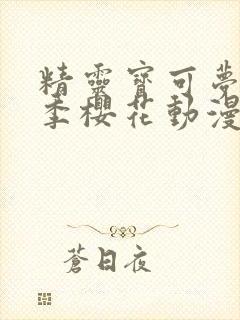 精靈寶可夢
季櫻花動漫
蒼日夜